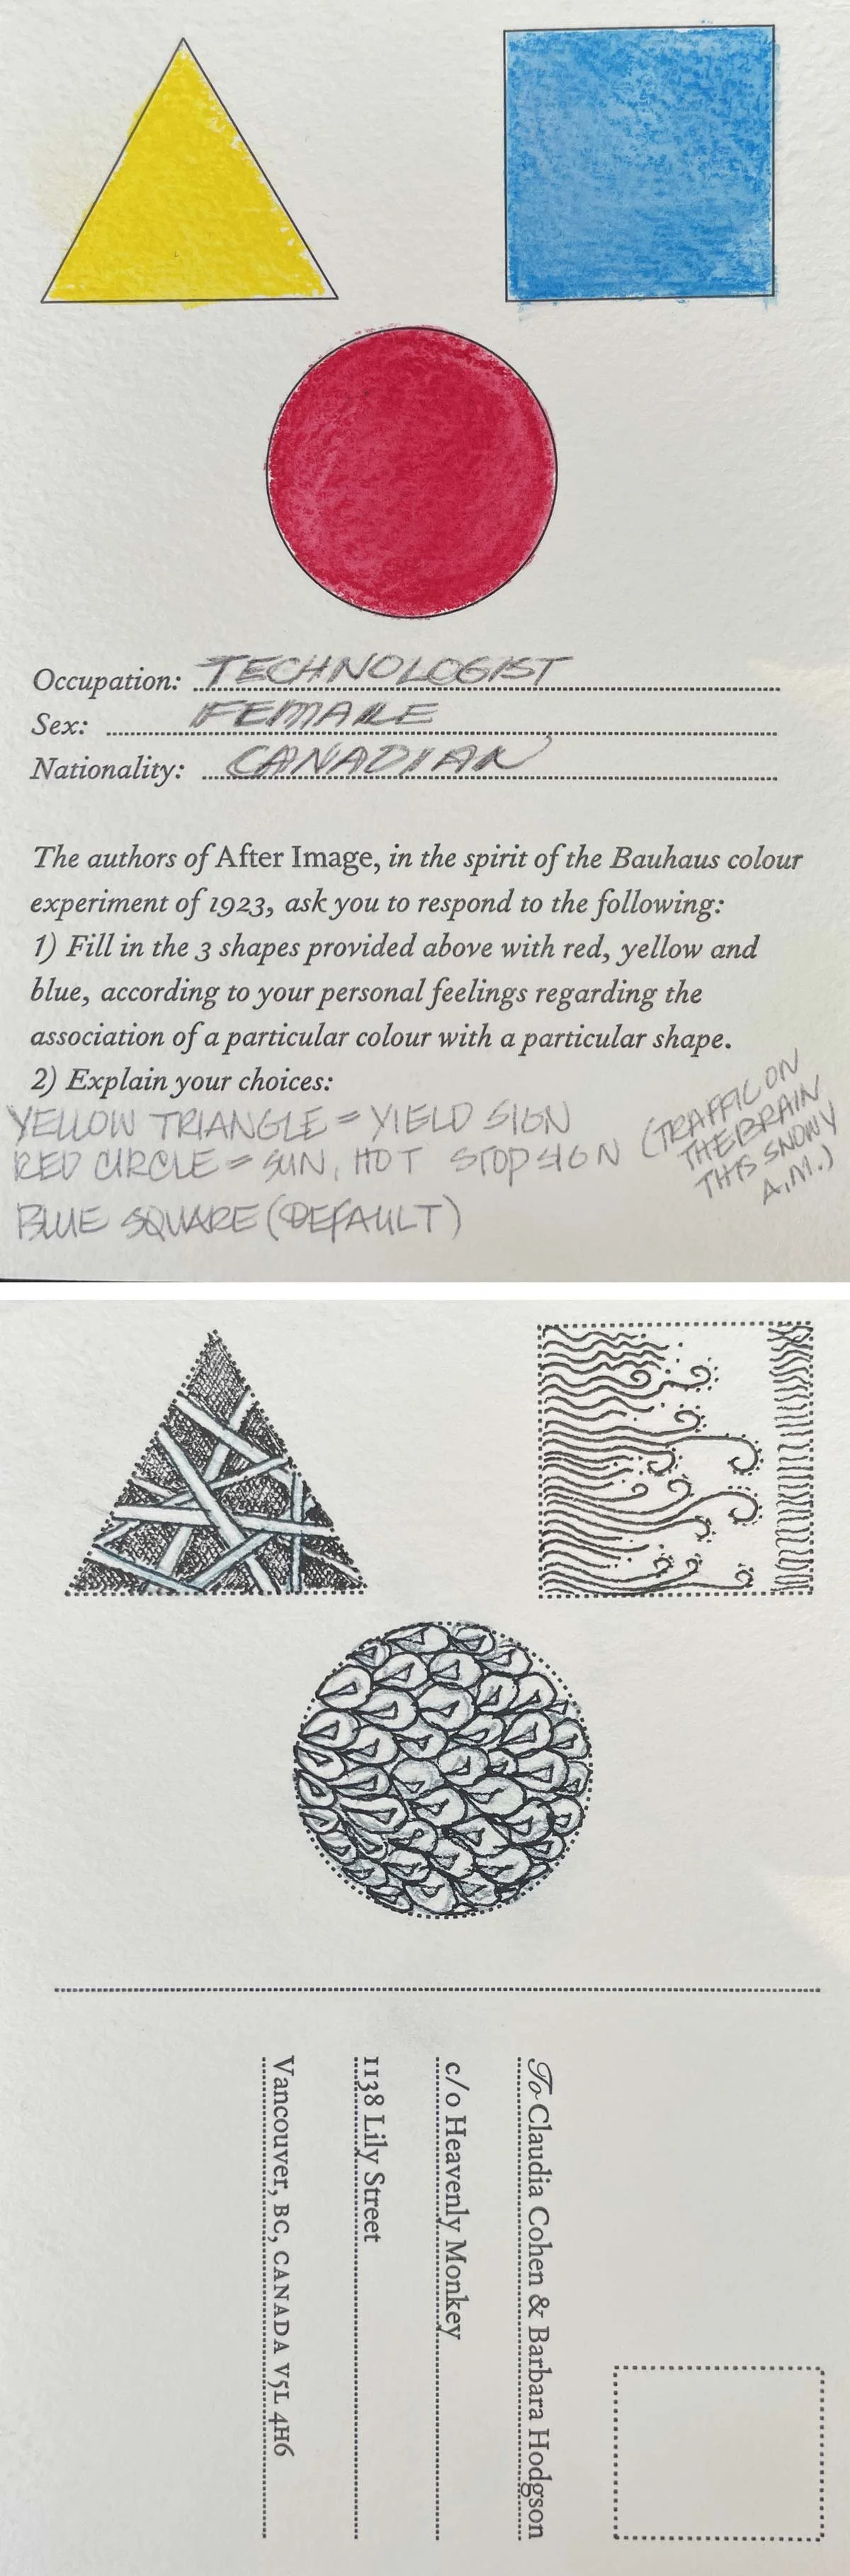 Occupation: TECHNOLOGIST
Sex: FEMALE
Nationality: CANADIAN
The authors of After Image, in the spirit of the Bauhaus colour
experiment of 1923, ask you to respond to the following:
1) Fill in the 3 shapes provided above with red, yellow and
blue, according to your personal feelings regarding the
association of a particular colour with a particular shape.
2) Explain your choices:
YELLOW TRIANGLE = YIELD SIGN
RED CIRCLE = SUN, HOT STOP SIGN
(TRAFFIC ON
THE BRAIN
THIS SNOWY
A.M.)
BLUE SQUARE (DEFAULT)
To Claudia Cohen & Barbara Hodgson
c/o Heavenly Monkey
1138 Lily Street
Vancouver, BC, CANADA V5L 4H6